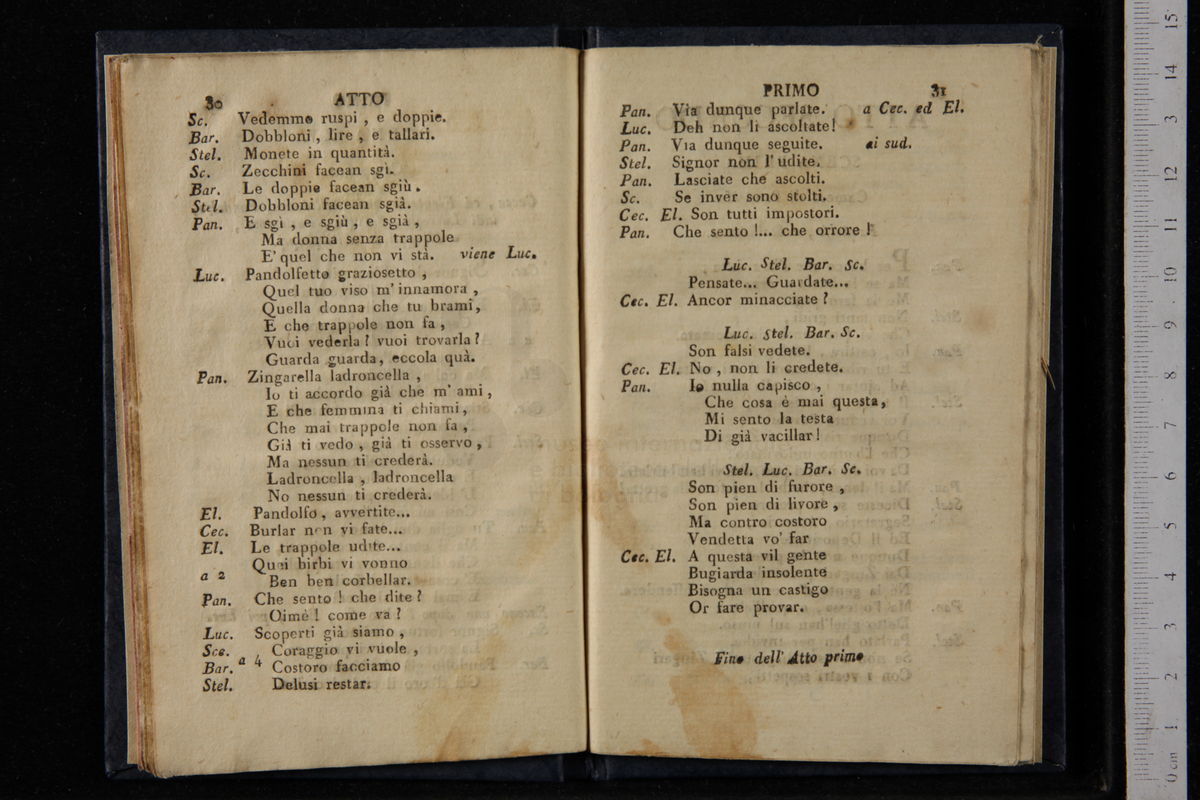 30 ATTO
Sc. Vedemmo ruspi , e doppie.
Bar. Dobbloni , lire , e tallari.
Stel. Monete in quantità.
Sc. Zecchini facean sgì.
Bar. Le doppie facean sgiù .
Stel. Dobbloni facean sgià.
Pan. E sgì , e sgiù , e sgià ,
Ma donna senza trappole
E' quel che non vi stà. viene Luc.
Luc. Pandolfetto graziosetto ,
Quel tuo viso m' innamora ,
Quella donna che tu brami,
E che trappole non fa ,
Vuoi vederla ? vuoi trovarla ?
Guarda guarda, eccola quà.
Pan. Zingarella ladroncella ,
Io ti accordo già che m' ami ,
E che femmina ti chiami,
Che mai trappole non fa ,
Già ti vedo , già ti osservo ,
Ma nessun ti crederà.
Ladroncella , ladroncella
No nessun ti crederà.
El. Pandolfo , avvertite...
Cec. Burlar non vi fate...
El. Le trappole udite...
Quei birbi vi vonno
a 2 Ben ben corbellar.
Pan. Che sento ! che dite ?
Oimè ! come va ?
Luc. Scoperti già siamo ,
Sce. Coraggio vi vuole ,
Bar. a 4 Costoro facciamo
Stel. Delusi restar.
PRIMO 31
Pan. Via dunque parlate. a Cec. ed El.
Luc. Deh non li ascoltate!
Pan. Via dunque seguite. ai sud.
Stel. Signor non l' udite.
Pan. Lasciate che ascolti.
Sc. Se inver sono stolti.
Cec. El. Son tutti impostori.
Pan. Che sento !... che orrore !
Luc. Stel. Bar. Sc.
Pensate... Guardate...
Cec. El. Ancor minacciate ?
Luc. Stel. Bar. Sc.
Son falsi vedete.
Cec. El. No , non li credete.
Pan. Io nulla capisco ,
Che cosa è mai questa,
Mi sento la testa
Di già vacillar !
Stel. Luc. Bar. Sc.
Son pien di furore ,
Son pien di livore ,
Ma contro costoro
Vendetta vo' far
Cec. El. A questa vil gente
Bugiarda insolente
Bisogna un castigo
Or fare provar.
Fine dell' Atto primo
0 cm 1 2 3 4 5 6 7 8 9 10 11 12 13 14 15